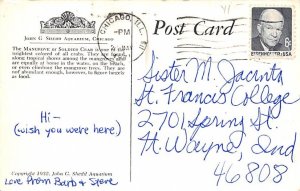 John G. Shedd Aquarium, Chicago
The Mangrove or Soldier Crab is one of the
brightest colored of all crabs. They are found
along tropical shores among the mangroves and
are equally at home in the water, on the beach,
or even in trees. They are edible, but they are
not abundant enough, however, to figure largely
as food.
Hi-
(wish you were here)
Copyright 1932, John G. Shedd Aquarium
Love from Barb & Steve
CHICAGO, ILL.
PM
Post Card
EISENHOWER·USA
8c
Sister M. Jacinta
St. Francis College
2701 Spring St.
Ft. Wayne, Ind
46808